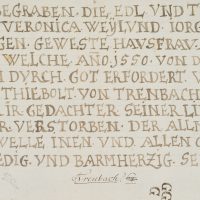 EGRABEN. DIE. EDL. VND. T
VERONICA. WEYLVND. IORG
GEN. GEWESTE. HAVSFRAV.
WELCHE. AÑO. 1550. VON. D
N. DVRCH. GOT. ERFORDERT. V
THIEBOLT. VON. TRENBACH
IR. GEDACHTER. SEINER. LI
R. VERSTORBEN. DER. ALLM
WELLE. INEN. VND. ALLEN. G
EDIG. VND. BARMHERZIG. SE
Trenbach.